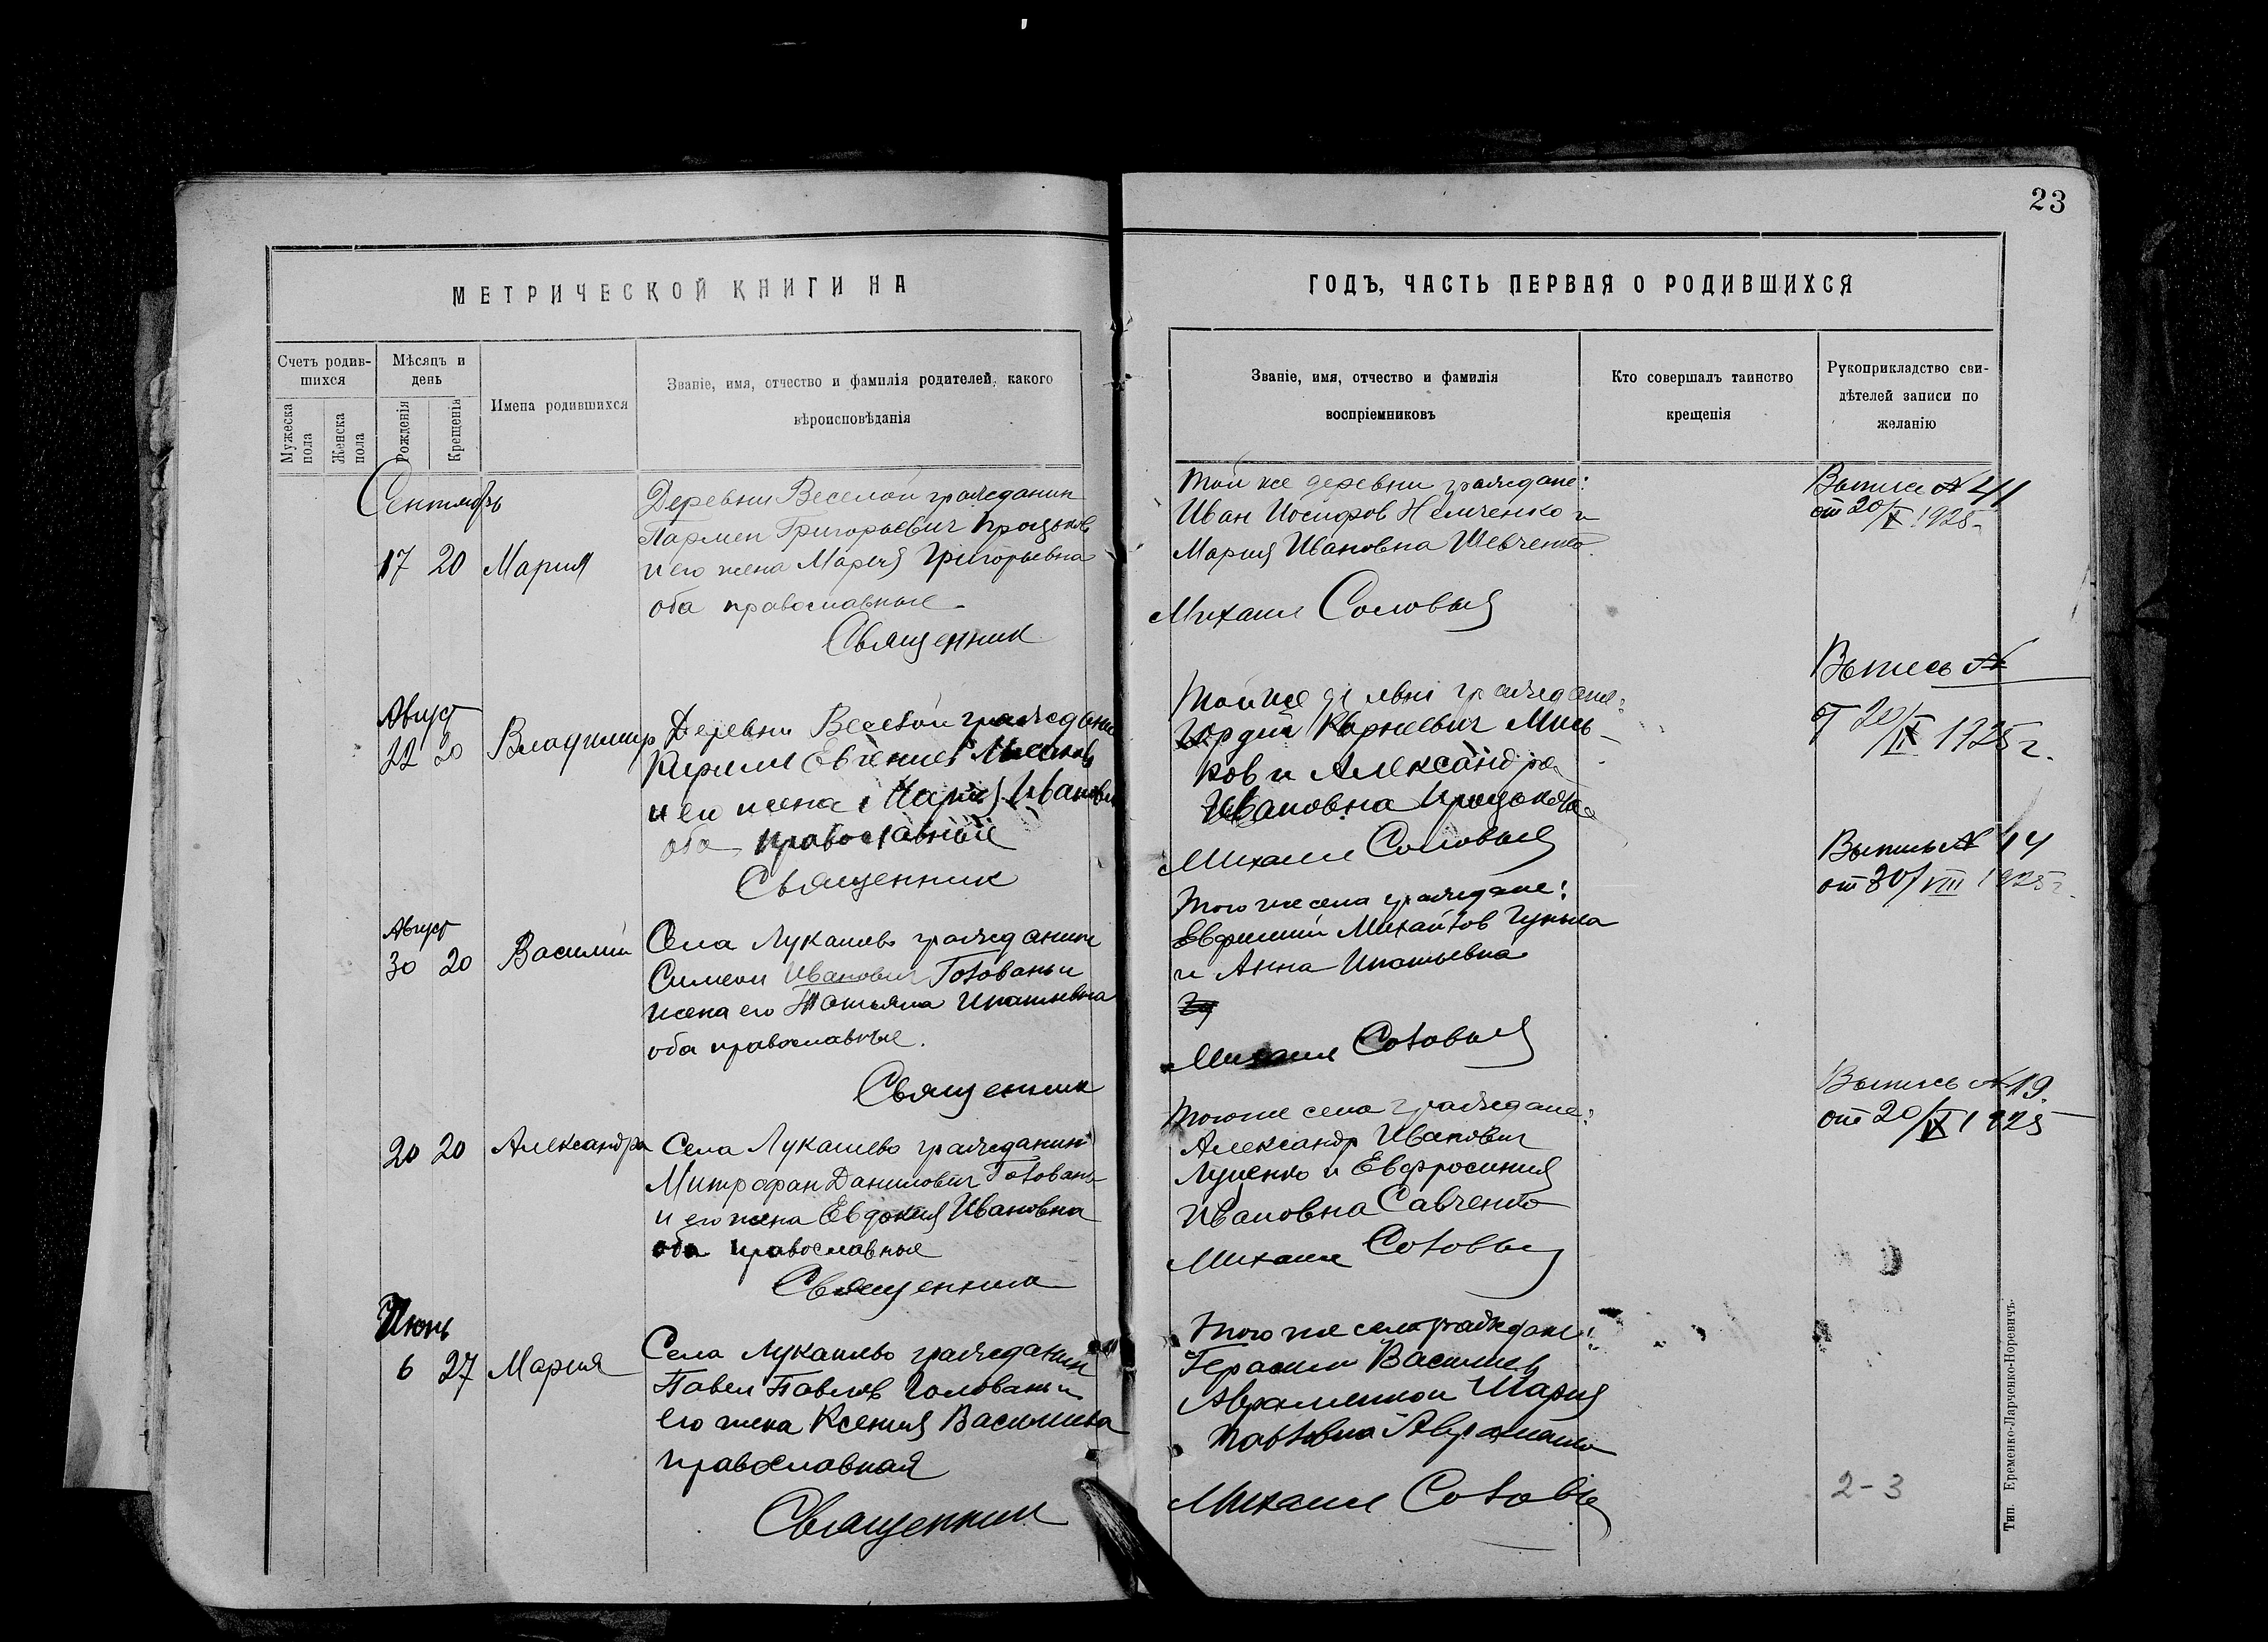 23
МЕТРИЧЕСКОЙ КНИГИ НА
ГОДЪ, ЧАСТЬ ПЕРВАЯ О РОДИВШИХСЯ
Счетъ родив-
шихся
Мужеска
пола
Женска
пола
Мѣсяцъ и
день
Рожденія
Крещенія
Имена родившихся
Званіе, имя, отчество и фамилія родителей, какого
вѣроисповѣданія
Званіе, имя, отчество и фамилія
воспріемниковъ
Кто совершалъ таинство
крещенія
Рукоприкладство сви-
дѣтелей записи по
желанію
Сентябрь
17 20 Мария
Деревни Веселой гражданин
Пармен Григорьевич Процьков
и его жена Мария Григорьевна
оба православные.
Священник
Той же деревни граждане:
Иван Иосифов Немченко и
Мария Ивановна Шевченко.
Михаил Соловый
Выпись № 41
от 20/X 1925
Август
22 20 Владимир
Деревни Веселой граждани
Кирилл Евгениев
и его жена Мария Ивановн
оба православные
Священник
Той же деревни граждане:
Гордий Корнеевич Мись-
ков и Александра
Ивановна Процькова
Михаил Соловый
Выпись №
от 20/ 1925 г.
Август
30 20 Василий
Села Лукашево гражданин
Симеон Иванович Головань и
жена его Татьяна Ипатьевна
оба православные.
Священник
Того же села граждане:
Евфимий Михайлов
и Анна Ипатьевна
Михаил Соловый
Выпись № 14
от 30/VIII 1925 г.
20 20 Александра
Села Лукашево гражданин
Митрофан Данилович Головань
и его жена Евдокия Ивановна
оба православные
Священник
Того же села граждане:
Александр Иванович
Луценко и Евфросиния
Ивановна Савченко
Михаил Соловый
Выпись № 19.
от 20/IX 1925
Июнь
6 27 Мария
Села Лукашево гражданин
Павел Павлов Головань и
его жена Ксения Васильева
православная
Священник
Того же села граждане:
Герасим Васильев
Авраменко и Мария
Павловна Авраменко
Михаил Соловый
2-3
Тип. Еременко-Ларченко-Норевичъ.